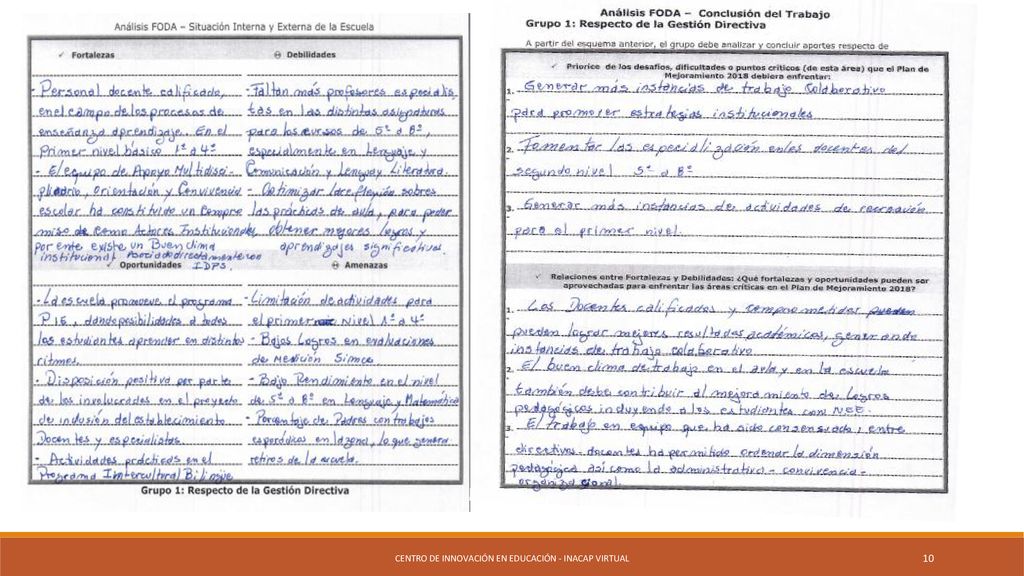 Análisis FODA – Situación Interna y Externa de la Escuela
✓ Fortalezas
- Personal docente calificado,
en el campo de los procesos de
enseñanza aprendizaje. En el
Primer nivel básico 1º a 4º
- El equipo de Apoyo Multidisci-
plinario, Orientación y Convivencia
escolar ha constituido un Compro
miso de como Actores Institucionales,
por ente existe un Buen clima
institucional Asociado directamente con
IDPS.
Debilidades
- Faltan más profesores especialis
tas en las distintas asignaturas
para los cursos de 5º a 8º,
especialmente en Lenguaje y
Comunicación y Lengua y Literatura.
- Optimizar la reflexión sobre
las prácticas de aula, para poder
obtener mejores logros y
aprendizajes significativos.
✓ Oportunidades
- La escuela promueve el programa
P.I.E, dando posibilidades a todos
los estudiantes aprender en distintos
ritmos.
- Disposición positiva por parte
de los involucrados en el proyecto
de inclusión del establecimiento
Docentes y especialistas.
- Actividades prácticas en el
Programa Intercultural Bilingüe
Amenazas
- Limitación de actividades para
el primer Nivel 1º a 4º
- Bajos Logros en evaluaciones
de Medición Simce
- Bajo Rendimiento en el nivel
de 5º a 8º en Lenguaje y Matemática
- Porcentaje de Padres con trabajos
esporádicos en la zona, lo que genera
retiros de la escuela.
Grupo 1: Respecto de la Gestión Directiva
Análisis FODA – Conclusión del Trabajo
Grupo 1: Respecto de la Gestión Directiva
A partir del esquema anterior, el grupo debe analizar y concluir aportes respecto de
✓ Priorice de los desafíos, dificultades o puntos críticos (de esta área) que el Plan de
Mejoramiento 2018 debiera enfrentar:
1. Generar más instancias de trabajo Colaborativo
para promover estrategias institucionales
2. Fomentar las especialización en los docentes del
segundo nivel 5º a 8º
3. Generar más instancias de actividades de recreación
para el primer nivel.
✓ Relaciones entre Fortalezas y Debilidades: ¿Qué fortalezas y oportunidades pueden ser
aprovechadas para enfrentar las áreas críticas en el Plan de Mejoramiento 2018?
1. Los Docentes calificados y comprometidos pueden
pueden lograr mejores resultados académicos, generando
instancias de trabajo colaborativo
2. El buen clima de trabajo en el aula y en la escuela
también debe contribuir al mejoramiento de Logros
pedagógicos incluyendo a los estudiantes con NEE.
3. El trabajo en equipo que ha sido consensuado, entre
directivos - docentes ha permitido ordenar la dimensión
pedagógica así como la administrativa - convivencia -
organizacional.
CENTRO DE INNOVACIÓN EN EDUCACIÓN - INACAP VIRTUAL
10